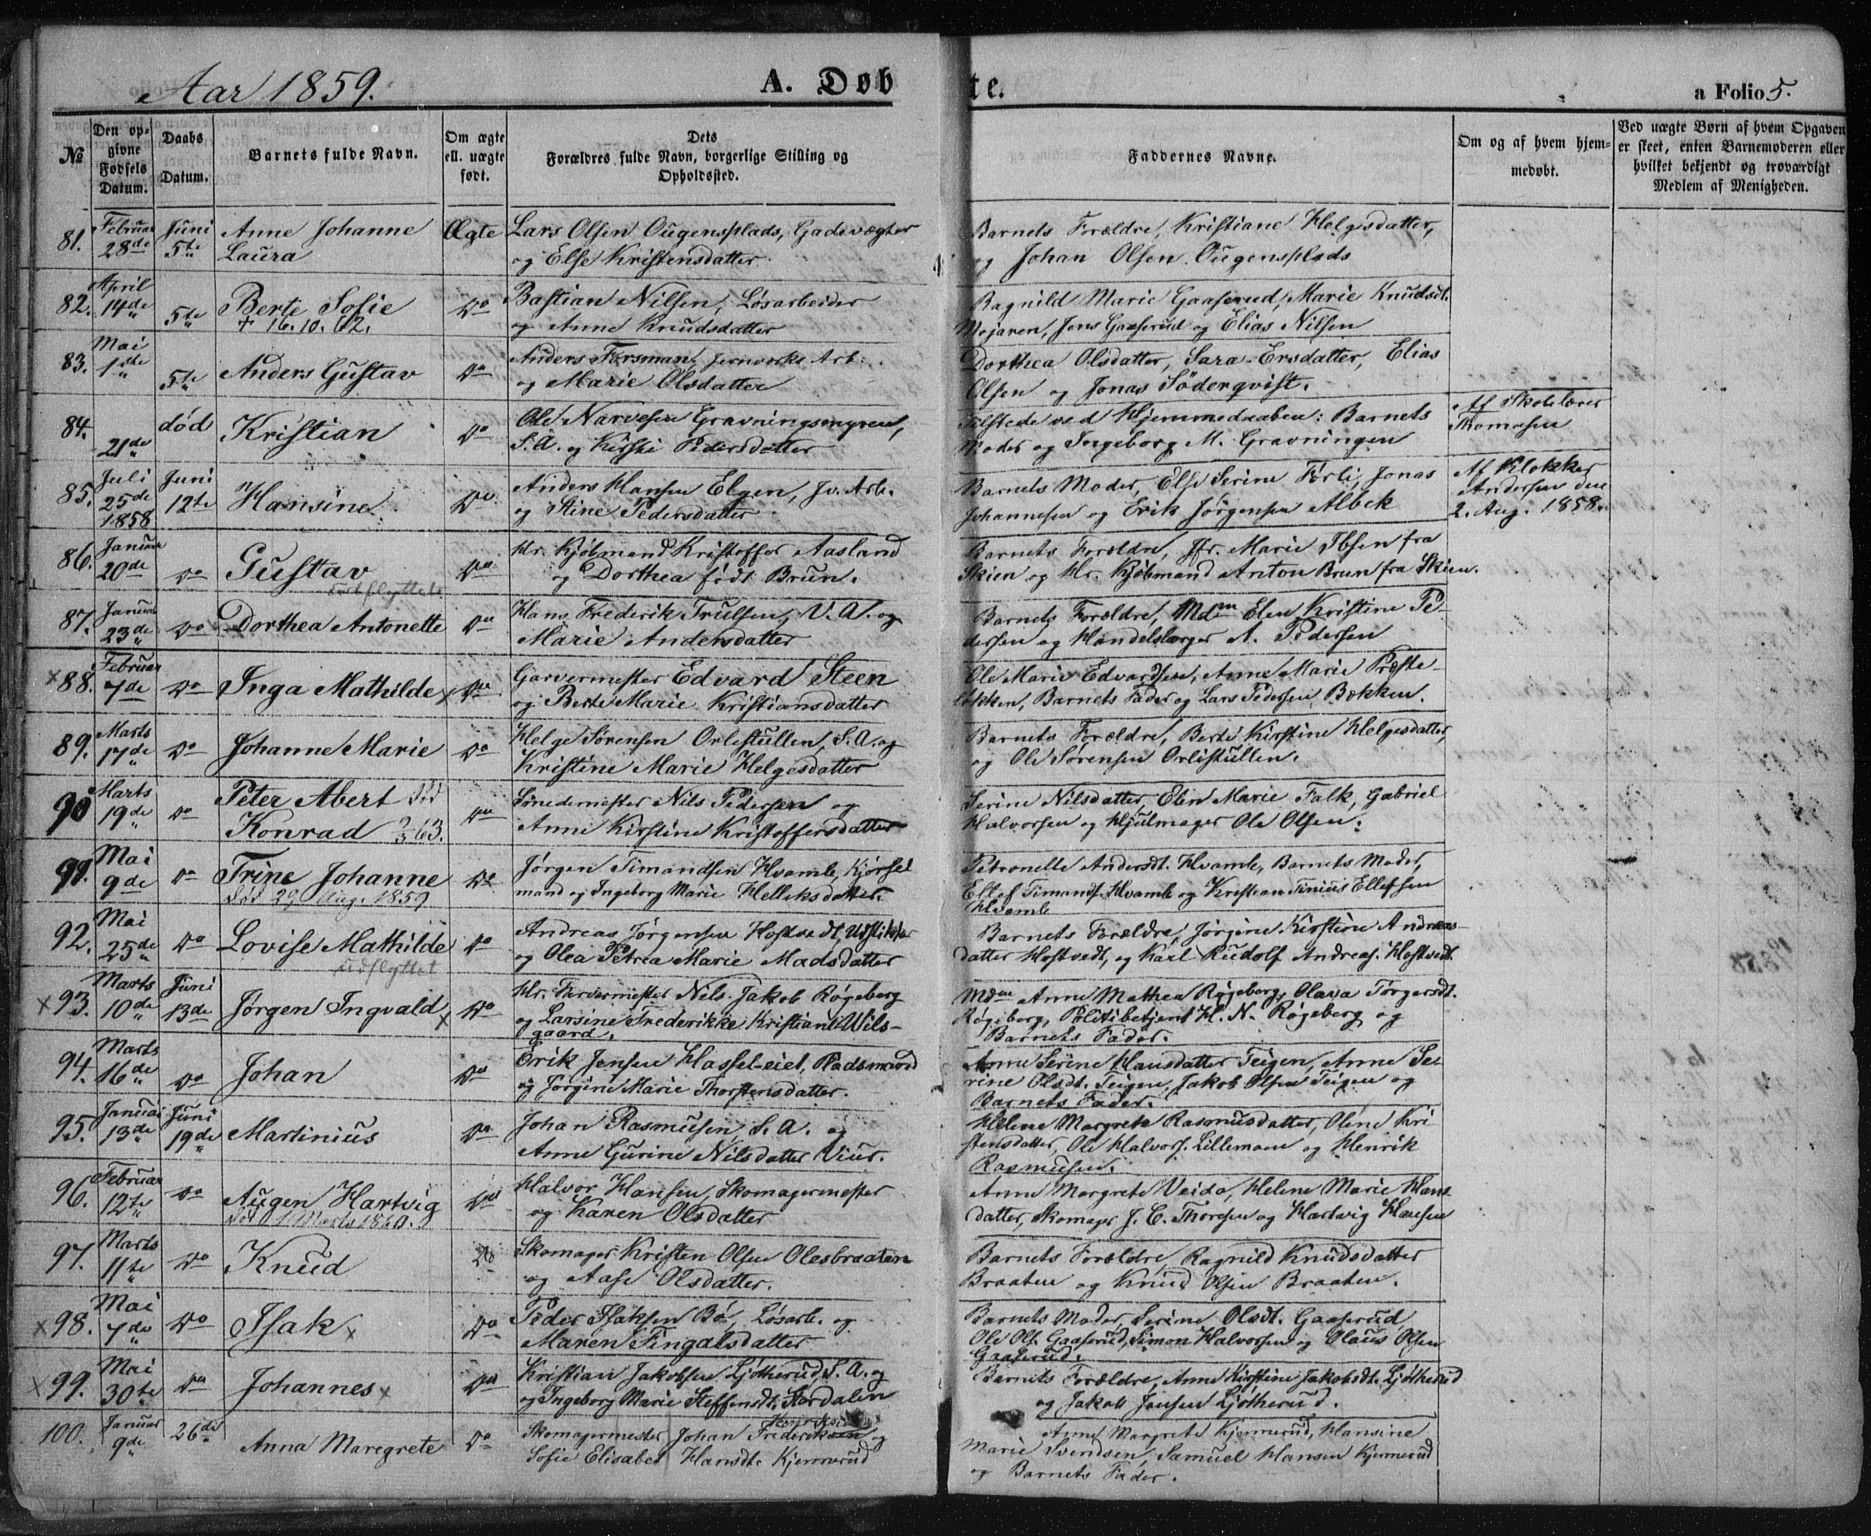 Aar 1859. A. Døbte. a Folio 5.
№ Den opgivne Fødsels Datum. Daabs Datum. Barnets fulde Navn. Om ægte ell. uægte født. Dets Forældres fulde Navn, borgerlige Stilling og Opholdssted. Faddernes Navne. Om og af hvem hjemmedøbt. Ved uægte Børn af hvem Opgaven er skeet, enten Barnemoderen eller hvilket bekjendt og troværdigt Medlem af Menigheden.
81. Februar 28de Juni 5te Anne Johanne Laura Ægte Lars Olsen Ougensplads, Gadevægter og Else Kristensdatter. Barnets Forældre, Kristiane Helgesdatter, og Johan Olsen Ougensplads
82. April 14de 5te Berte Sofie + 16.10.62. Do Bastian Nilsen, Løsarbeider og Anne Knudsdatter Ragnild Marie Gaaserud, Marie Knudsdt. Mojaren, Jens Gaaserud og Elias Nilsen
83. Mai 1ste 5te Anders Gustav Do Anders Forsman, Jernverks Arb. og Marie Olsdatter Dorthea Olsdatter, Sara Ersdatter, Elias Olsen og Jonas Söderqvist.
84. 21de død Kristian Do Ole Narvesen Gravningsmyren, S.A. og Kirsti Pedersdatter Tilstede ved Hjemmedaaben: Barnets Moder og Ingeborg M. Gravningen Af Skolelærer Thomesen
85. Juli 25de 1858 Juni 12te Hansine Do Anders Hansen Elgen, Jv. Arb. og Stine Pedersdatter Barnets Moder, Else Serine Forli, Jonas Johannesen og Erik Jørgensen Albek Af Klokker Andersen den 2. Aug. 1858.
86. Januar 20de Do Gustav Udflyttet Do Hr. Kjøbmand Kristoffer Aasland og Dorthea født Brun. Barnets Forældre, Jfr. Marie Ibsen fra Skien og Hr. Kjøbmand Anton Brun fra Skien.
87. Januar 23de Do Dorthea Antonette Do Hans Frederik Trulsen, V.A. og Marie Andersdatter Barnets Forældre, Mdm Elen Kristine Pedersen og Handelsborger A. Pedersen
x 88. Februar 7de Do Inga Mathilde x Do Garvermester Edvard Steen og Berte Marie Kristiansdatter Ole Marie Edvardsen, Anne Marie Præsteløkken, Barnets Fader og Lars Pedersen Bækken.
89. Marts 17de Do Johanne Marie Do Helge Sørensen Orlestullen, S.A. og Kristine Marie Helgesdatter Barnets Forældre, Berte Kirstine Helgesdatter, og Ole Sørensen Orlistullen.
90 Marts 19de Do Peter Abert Konrad Do Snedemester Nils Pedersen og Anne Kirstine Kristoffersdatter Serine Nilsdatter, Elen Marie Falk, Gabriel Halvorsen og Hjulmager Ole Olsen.
91. Mai 9de Do Trine Johanne Død 29 Aug. 1859 Do Jørgen Timandsen Hvamb, Kjørselmand og Ingeborg Marie Helleksdatter. Petronelle Andersdt. Hvamb, Barnets Moder, Ellef Timands. Hvamb og Kristian Tinius Ellefsen Hvamb
92. Mai 25de Do Lovise Mathilde Udflyttet Do Andreas Jørgensen Hostvedt, Udstikker og Olea Petrea Marie Madsdatter Barnets Forældre, Jørgine Kirstine Andreasdatter Hostvedt, og Karl Rudolf Andreas. Hostvedt.
x 93. Marts 10de Juni 13de Jørgen Ingvald x Do Hr. Farvermester Nils Jakob Røgeberg og Larsine Frederikke Kristiane Wilsgaard. Mdm Anne Mathea Røgeberg, Olava Torgersdt. Røgeberg, Politibetjent H. N. Røgeberg og Barnets Fader.
94. Marts 16de Do Johan Do Erik Jensen Hassel-eiet, Radsmand og Jørgine Marie Thorstensdatter. Anne Serine Hansdatter Teigen, Anne Serine Olsdt. Teigen, Jakob Olsen Teigen og Barnets Fader.
95. Januar 13de Juni 19de Martinius Do Johan Rasmusen S.A. og Anne Gurine Nilsdatter Viur. Helene Margrete Rasmusdatter, Oline Kristensdatter, Ole Halvors. Lilleman og Henrik Rasmusen.
96. Februar 12te Do Augen Hartvig Død 1 Marts 1860. Do Halvor Hansen, Skomagermester og Karen Olsdatter Anne Margrete Veido, Helene Marie Hansdatter, Skomager J. C. Thoresen og Hartvig Hansen
97. Marts 11te Do Knud Do Skomager Kristen Olsen Olesbraaten og Aase Olsdatter. Barnets Forældre, Ragnild Knudsdatter Braaten og Knud Olsen Braaten.
x 98. Mai 7de Do Isak x Do Peder Isaksen Bö, Løsarb. og Maren Fingalsdatter Barnets Moder, Serine Olsdt. Gaaserud, Ole Ols. Gaaserud, Simon Halvorsen og Olaus Olsen Gaaserud.
x 99. Mai 30te Do Johannes x Do Kristian Jakobsen Ljøtherud, S.A. og Ingeborg Marie Steffensdt. Stordalen Barnets Forældre, Anne Kirstine Jakobsdt. Ljøtherud og Jakob Jensen Ljøtherud.
100. Januar 9de 26de Anna Maregrete Do Skomagermester Johan Frederiksen og Sofie Elisabet Hansdt. Kjennerud Anne Margrete Kjennerud, Hansine Marie Svendsen, Samuel Hansen Kjennerud og Barnets Fader.